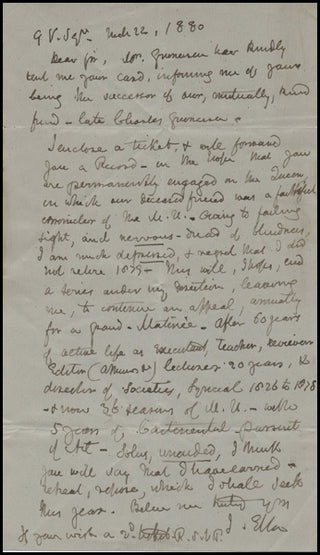 9 V. Sqre. March 22, 1880
Dear Sir, Mr. Gruneisen has kindly
sent me your card, informing me of your
being the successor of our, mutually, kind
friend - late Charles Gruneisen.
I enclose a ticket, & will forward
you a Record - in the hope that you
are permanently engaged on the Queen,
in which our deceased friend was a faithful
chronicler of the M.U. - Owing to failing
sight, and nervous - dread of blindness,
I am much depressed, & regret that I did
not retire 1879 - This will, I hope, end
a series under my direction, leaving
me, to continue an appeal, annually
for a grand - Matinée - After 60 years
of active life as executant, teacher, reviewer
Editor lecturer 20 years, &
director of Societies, Lyrical 1826 to 1875
- & now 36 seasons of M.U. - with
5 years of Continental pursuit
of Art - Solus, unaided, I think
you will say that I have earned -
retreat, repose, which I shall seek
this year. Believe me truly yrs
J. Ella
If you wish a 2d. ticket R.S.V.P.